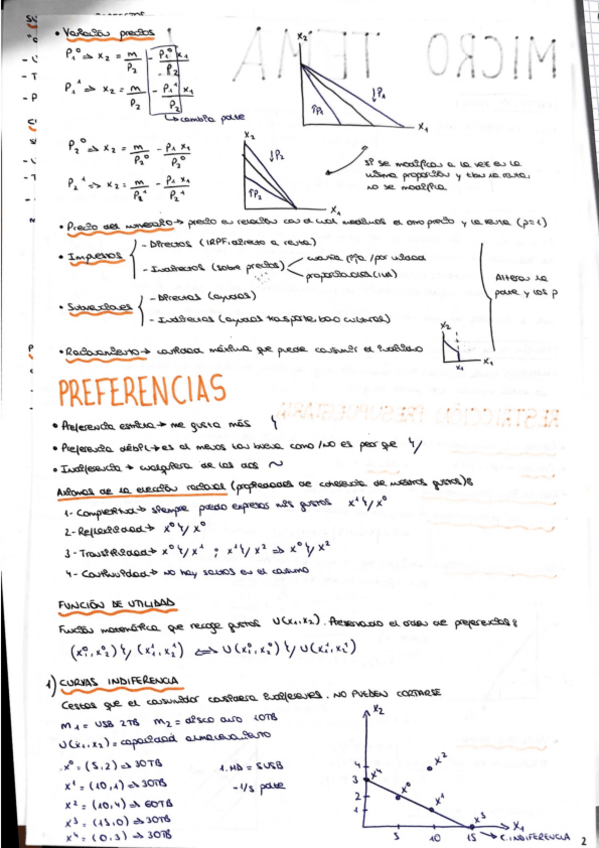 • Variación precios
P₁⁰ ⇒ x₂ = m/P₂ - P₁⁰/P₂ x₁
P₁¹ ⇒ x₂ = m/P₂ - P₁¹/P₂ x₁
↳ cambia pdte
x₂
↑P₁
↓P₁
x₁
P₂⁰ ⇒ x₂ = m/P₂⁰ - P₁ x₁/P₂⁰
P₂¹ ⇒ x₂ = m/P₂¹ - P₁ x₁/P₂¹
x₂
↓P₂
↑P₂
x₁
si se modifica a la vez en la
misma proporción y tbn la renta,
no se modifica
• Precio del numerario → precio en relación con el cual medimos el otro precio y la renta (p=1)
• Impuestos
- Directos (IRPF, directo a renta)
- Indirectos (sobre precios)
cuantía fija / por unidad
proporcionales (iva)
Alteran la
pdte y los p
• Subvenciones
- Directas (ayudas)
- Indirectas (ayudas transporte, bono culturales)
• Racionamiento → cantidad máxima que puede consumir el individuo
x₂
x₁
x₁
PREFERENCIAS
• Preferencia estricta → me gusta más ≻
• Preferencia débil → es al menos tan buena como / no es peor que ≽
• Indiferencia → cualquiera de las dos ∼
Axiomas de la elección racional (propiedades de coherencia de nuestros gustos):
1- Completitud → siempre puedo expresar mis gustos x¹ ≽ x⁰
2- Reflexividad → x⁰ ≽ x⁰
3- Transitividad → x⁰ ≽ x¹ ; x¹ ≽ x² ⇒ x⁰ ≽ x²
4- Continuidad → no hay saltos en el consumo
FUNCIÓN DE UTILIDAD
Función matemática que recoge gustos U(x₁,x₂). Preservando el orden de preferencias:
(x₁⁰,x₂⁰) ≽ (x₁¹,x₂¹) ⇔ U(x₁⁰,x₂⁰) ≽ U(x₁¹,x₂¹)
1) CURVAS INDIFERENCIA
Cestas que el consumidor considera indiferentes. NO PUEDEN CORTARSE
m₁ = USB 2TB m₂ = disco duro 10TB
U(x₁,x₂) = capacidad almacenamiento
x⁰ = (5,2) ⇒ 30TB
x¹ = (10,1) ⇒ 30TB
x² = (10,4) ⇒ 60TB
x³ = (15,0) ⇒ 30TB
x⁴ = (0,3) ⇒ 30TB
1 HD = 5USB
-1/5 pdte
x₂
4
3
2
1
x⁴
x⁰
x²
x¹
x³
5
10
15
x₁
C. INDIFERENCIA
2